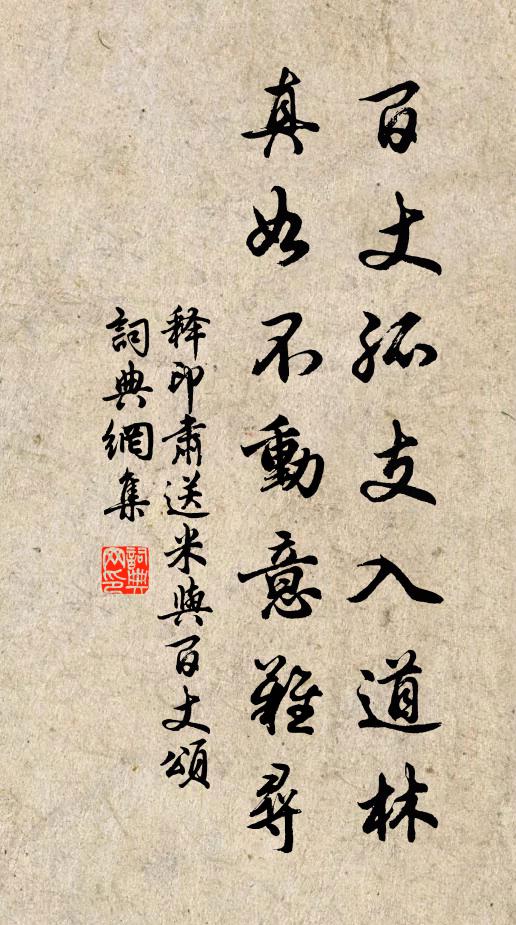 百丈孤支入道林
真如不動意難尋
释印肅送米與百丈頌
詞典網集
詞典網印